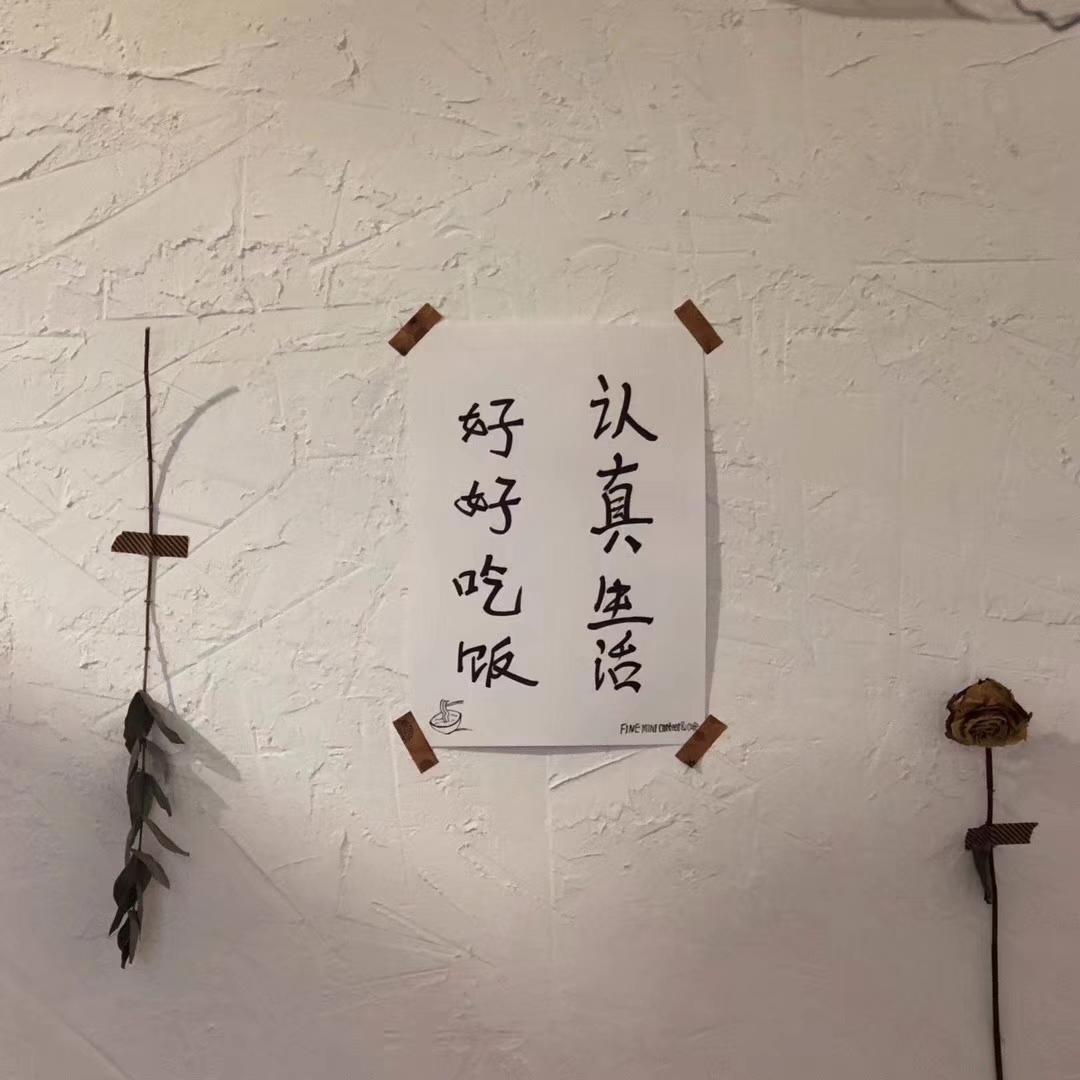 认真生活
好好吃饭
FINE MINI